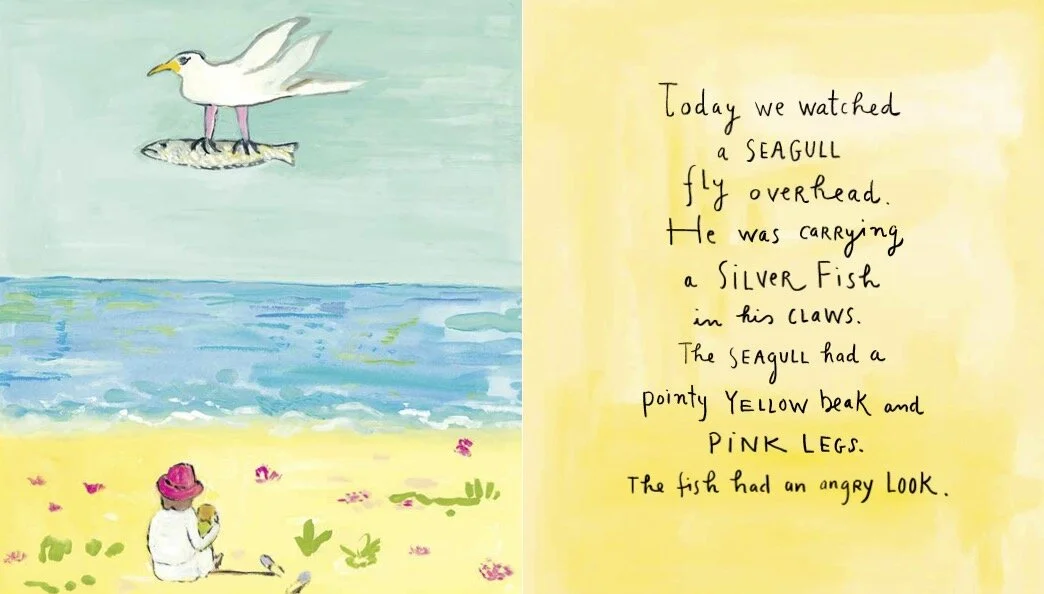 Today we watched
a SEAGULL
fly overhead.
He was carrying
a SILVER Fish
in his CLAWS.
The SEAgULL had a
pointy YELLOW beak and
PiNK LEGS.
The fish had an angry LOOK.